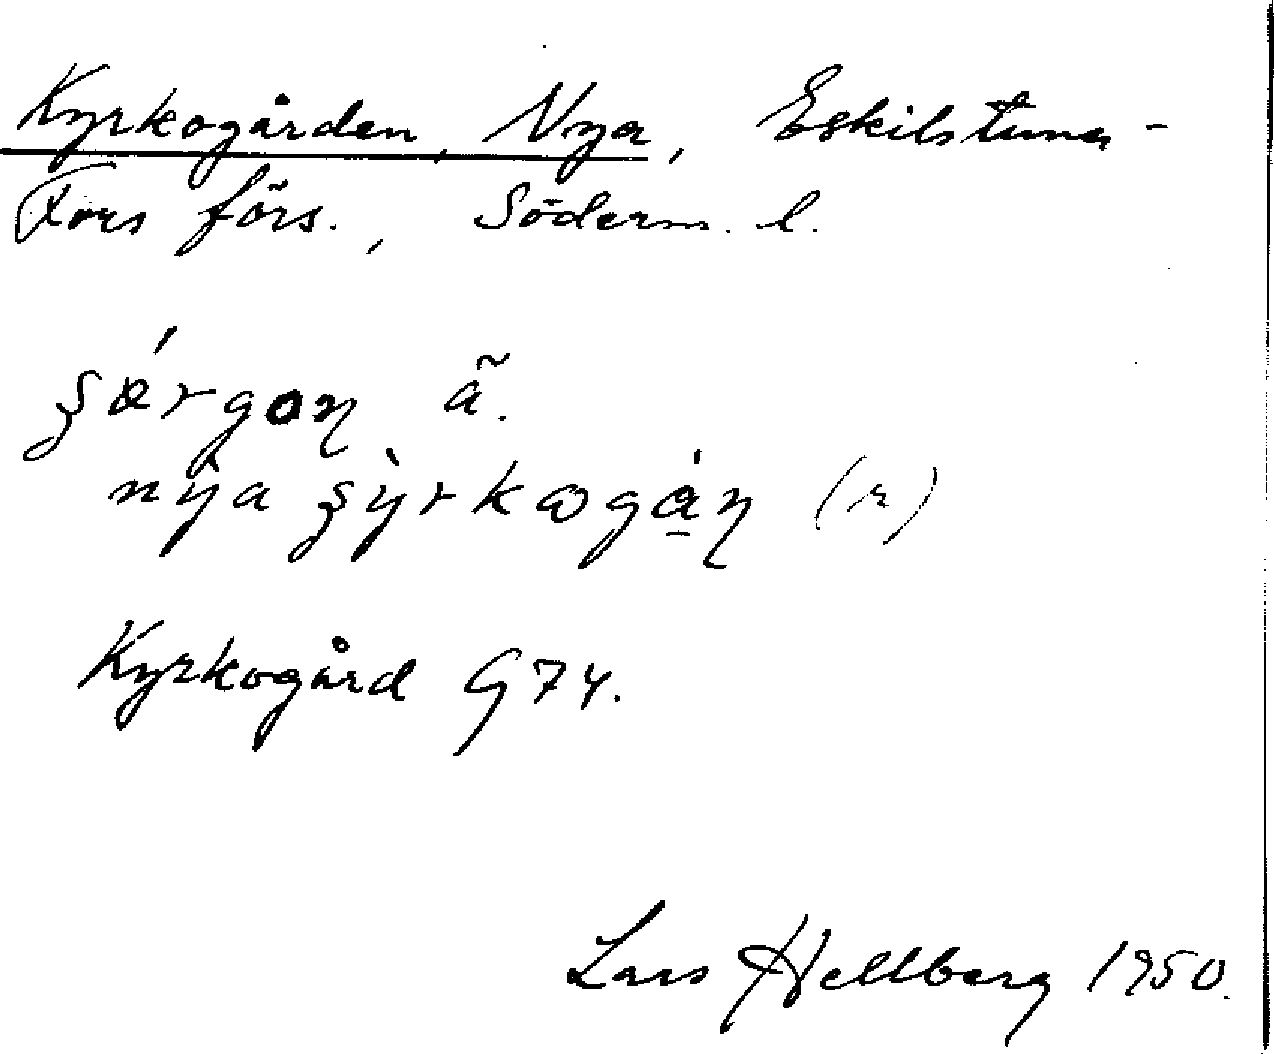 Kyrkogården, Nya, Eskilstuna-
Fors förs., Söderm. l.
ȿǿrgoɳ ã.
nỳa ȿỳrkωgȧ̱ɳ (r)
Kyrkogård G74.
Lars Hellberg 1950.